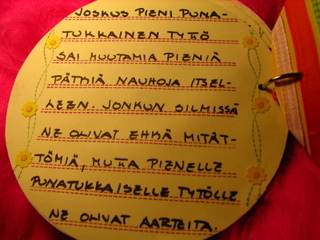 JOSKUS PIENI PUNA-
TUKKAINEN TYTTÖ
SAI MUUTAMIA PIENIÄ
PÄTKIÄ NAUHOJA ITSEL-
LEEN. JONKUN SILMISSÄ
NE OLIVAT EHKÄ MITÄT-
TÖMIÄ, MUTTA PIENELLE
PUNATUKKAISELLE TYTÖLLE
NE OLIVAT AARTEITA.